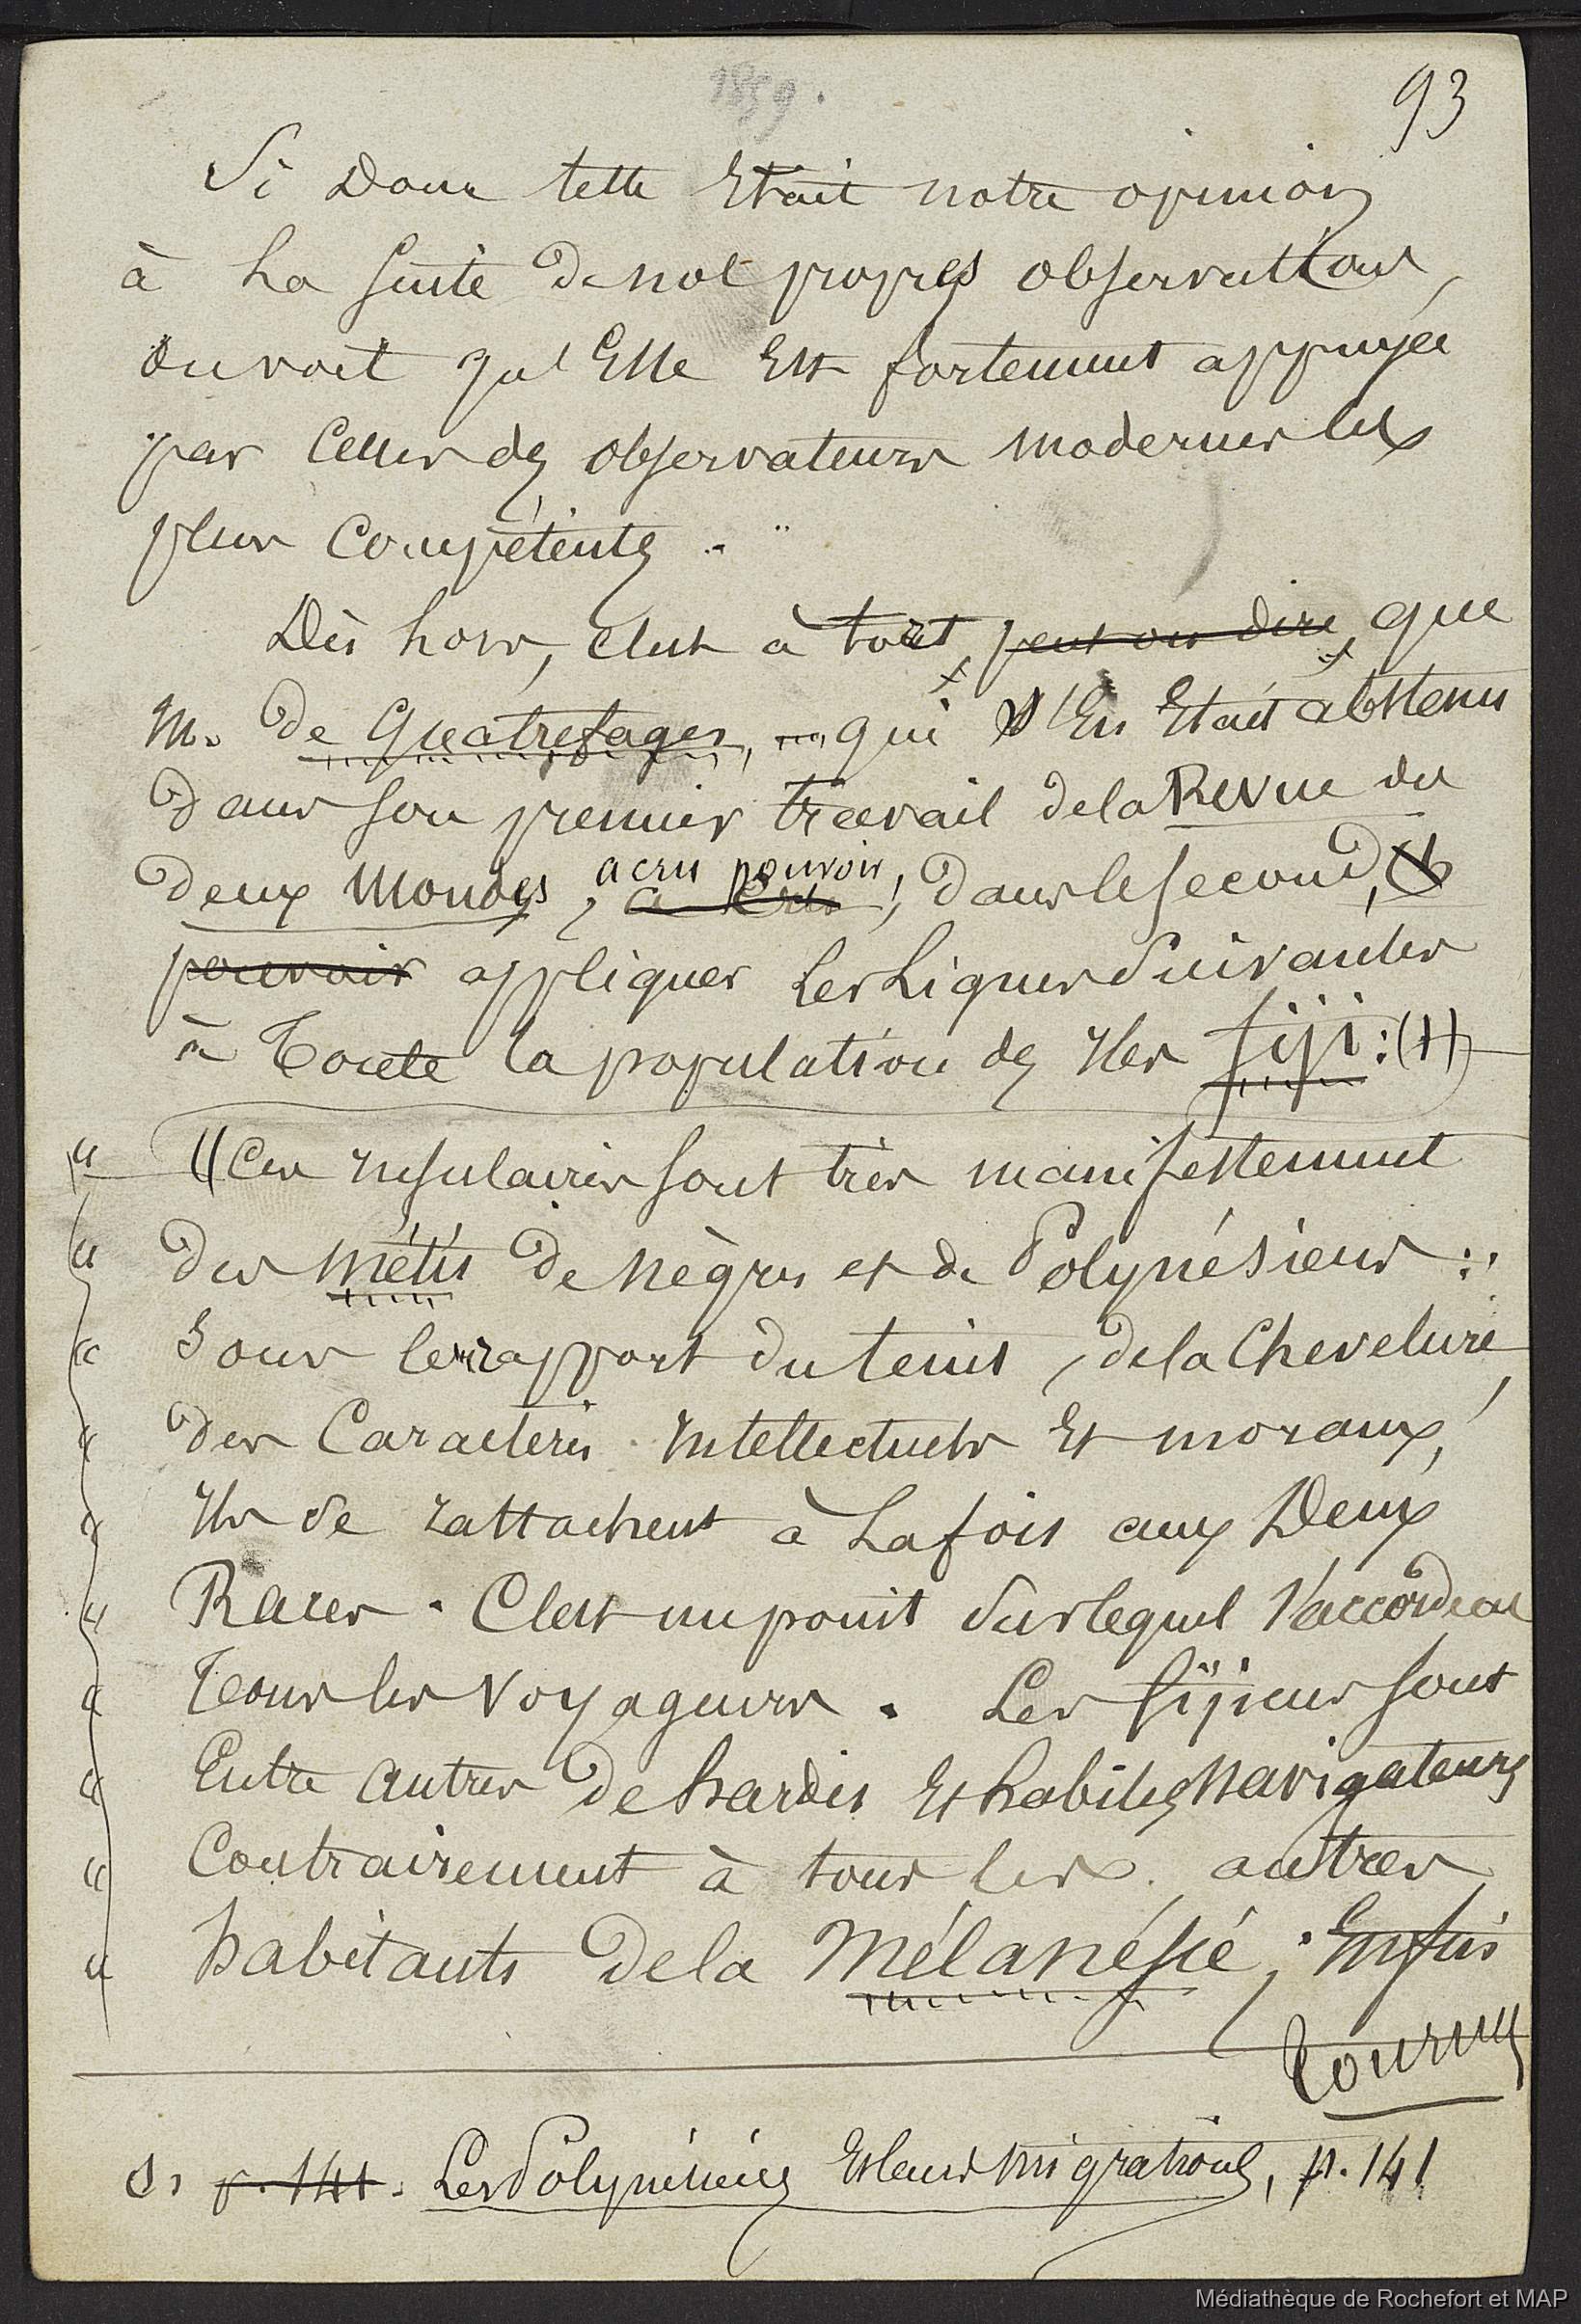 1859.
93
Si donc telle Etait notre opinion
à la suite de nos propres observations,
on voit qu'Elle Est fortement appuyée
par Celles des observateurs modernes les
plus Compétents.
Dès lors, c'est à tort, peut on dire, que
M. de Quatrefages, qui s'En Etait abstenu
dans son premier travail de la Revue des
a cru pouvoir
deux Mondes, a cru, dans le second,
pouvoir appliquer les Lignes suivantes
à Toute la population des Iles fiji : (1)
"Ces Insulaires sont très manifestement
" des métis de nègres et de Polynésiens :
" sous le rapport du teint, de la Chevelure,
" des Caractères Intellectuels Et moraux,
" Ils se rattachent à La fois aux Deux
" Races. C'est un point sur lequel s'accordent
" Tous les Voyageurs. Les fijiens sont
" Entre autres de hardis Et habiles navigateurs
" Contrairement à tous les autres
" habitants de la Mélanésie ; Enfin
tournez
1, p. 141. Les Polynésiens Et leurs migrations, p. 141
Médiathèque de Rochefort et MAP